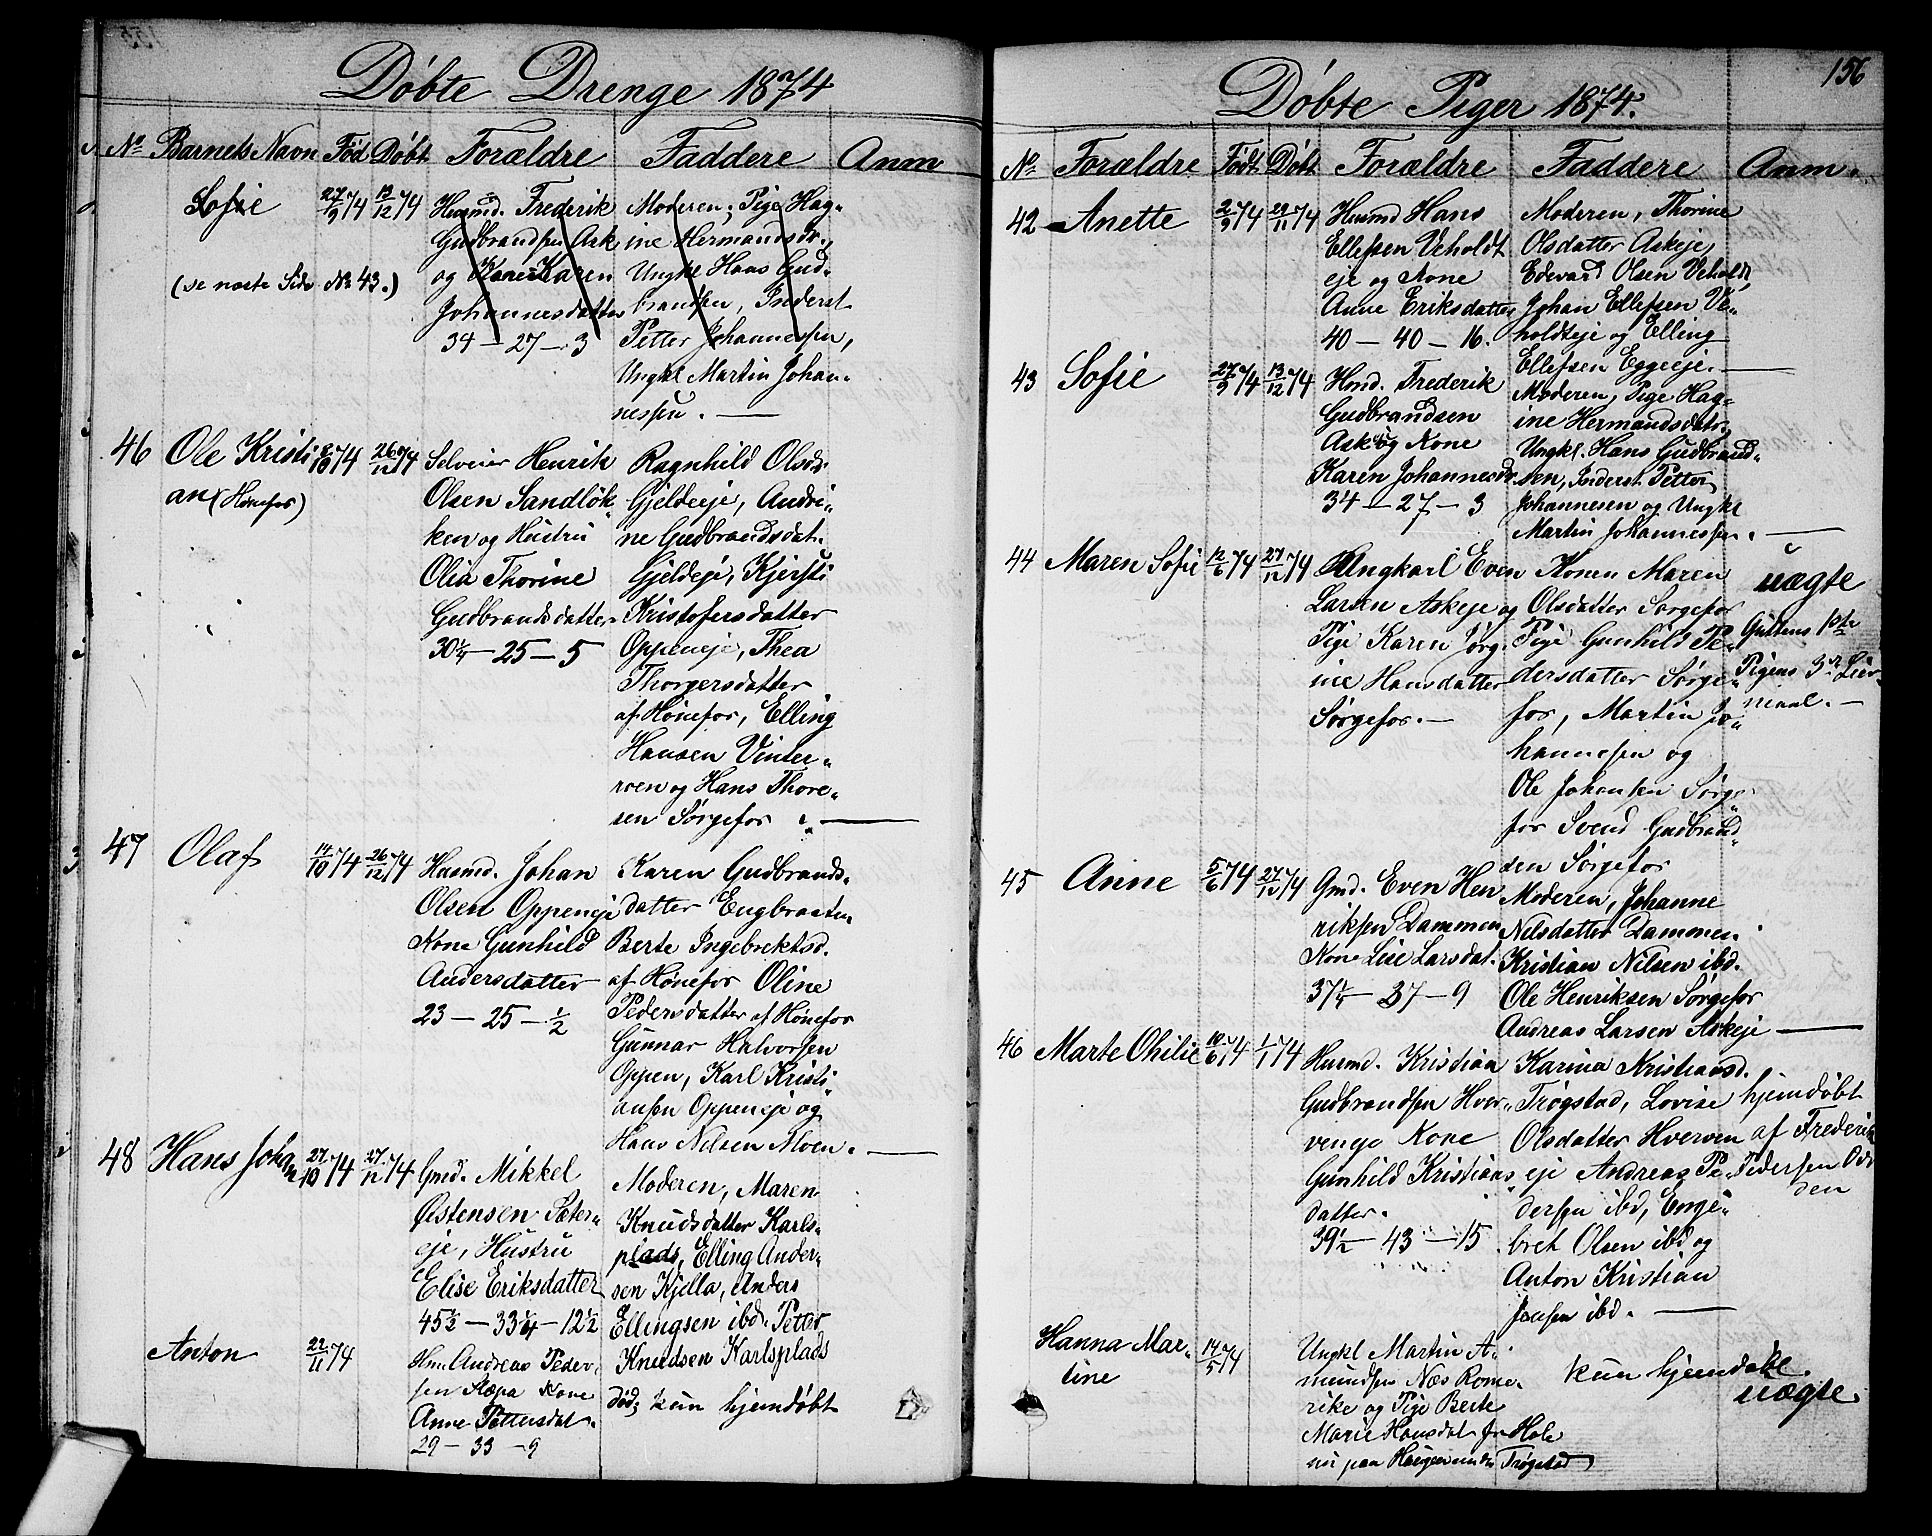 Döbte Drenge 1874
No Barnets Navn Fød Döbt Forældre Faddere Anm
Sofie 27/9 74 13/12 74
(se næste Side No 43.)
Husmd. Frederik
Gudbrandsen Ask
og Kone Karen
Johannesdatter
34 — 27 — 3
Moderen, Pige Hag-
ine Hermandsdr.,
Ungkl Hans Gud-
brandsen, Inderst
Petter Johannesen,
Ungkl Martin Johan-
nesen. —
46 Ole Kristi- 8/10 74 26/12 74
an (Hönefos)
Selveier Henrik
Olsen Sandlök-
ken og Hustru
Olia Thorine
Gudbrandsdatter
30 1/4 — 25 — 5
Ragnhild Olsdr
Gjeldeeje, Andri-
ne Gudbrandsdat.
Gjeldeje, Kjersti
Kristofersdatter
Oppeneje, Thea
Thorgersdatter
af Hönefos, Elling
Hansen Vinter-
roen og Hans Thore-
sen Sörgefos. —
47 Olaf 14/10 74 26/12 74
Husmd. Johan
Olsen Oppeneje
Kone Gunhild
Andersdatter
23 — 25 — 1/2
Karen Gudbrands-
datter Engbraaten
Berte Ingebrektsd.
af Hönefos Oline
Pedersdatter af Hönefos
Gunnar Halvorsen
Oppen, Karl Kristi-
ansen Oppeneje og
Hans Nilsen Moen. —
48 Hans Johan 27/10 74 27/12 74
Gmd. Mikkel
Østensen Sæter-
eje, Hustru
Elise Eriksdatter
45 1/2 — 33 1/4 — 12 1/2
Moderen, Maren
Knudsdatter Karls-
plads, Elling Ander-
sen Kjella, Anders
Ellingsen ibd. Petter
Knudsen Karlsplads
Anton 22/11 74
Hm. Andreas Peder-
sen Stæpa Kone
Anne Pettersdat.
29 — 33 — 9
död; kun hjemdöbt
156
Döbte Piger 1874.
No Forældre Født Döbt Forældre Faddere Anm.
42 Anette 2/9 74 29/11 74
Husmd Hans
Ellefsen Veholdt
eje og Kone
Anne Eriksdatter
40 — 40 — 16.
Moderen, Thorine
Olsdatter Askeje,
Edevard Olsen Veholdt,
Johan Ellefsen Ve-
holdteje og Elling
Ellefsen Eggeeje. —
43 Sofie 27/9 74 13/12 74
Hmd. Frederik
Gudbrandsen
Ask og Kone
Karen Johannesdr.
34 — 27 — 3
Moderen, Pige Hag-
ine Hermandsdatr,
Ungkl. Hans Gudbrand-
sen, Inderst Petter
Johannesen og Ungkl
Martin Johannessen. —
44 Maren Sofie 12/6 74 27/12 74
Ungkarl Even
Larsen Askeje og
Pige Karen Jörg-
ine Hansdatter
Sörgefos. —
Konen Maren
Olsdatter Sörgefos
Pige Gunhild Pe-
dersdatter Sörge-
fos, Martin Jo-
hannesen og
Ole Johansen Sörge-
fos Svend Gudbrand-
sen Sörgefos
uægte
Guttens 1ste
Pigens 3de Leier-
maal. —
45 Anne 5/6 74 27/12 74
Gmd. Even Hen
riksen Dammen
Kone Lise Larsdat.
37 1/4 — 37 — 9
Moderen, Johanne
Nilsdatter Dammen.
Kristian Nilsen ibd.
Ole Henriksen Sörgefos
Andreas Larsen Askeje —
46 Marte Othilie 10/6 74 1/1 74
Husmd. Kristian
Gudbrandsen Hver-
veneje Kone
Gunhild Kristians
datter.
39 1/2 — 43 — 15
Karina Kristiansd.
Trögstad, Lovise
Olsdatter Hverven
eje Andreas Pe-
dersen ibd, Enge-
bret Olsen ibd og
Anton Kristian
Jensen ibd. —
hjemdöbt
af Frederik
Pedersen Od
den
Hanna Mar- 14/5 74
tine
Ungkl Martin A-
mundsen Næs Rome-
rike og Pige Berte
Marie Hansdat fra Hole
nu paa Haugen under Trögstad
kun hjemdöbt.
uægte.